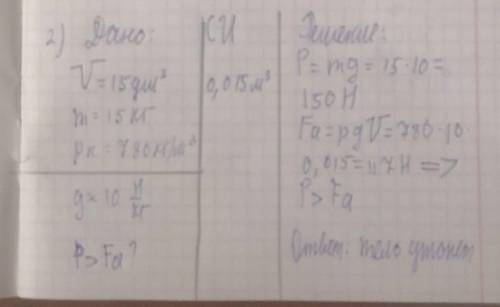 2) Дано:
V = 15 дм³
m = 15 кг
ρк = 780 кг/м³
g ≈ 10 Н/кг
P > Fа?
СИ
0,015 м³
Решение:
P = mg = 15·10 =
150 Н
Fа = ρgV = 780·10·
0,015 = 117 Н =>
P > Fа
Ответ: тело утонет